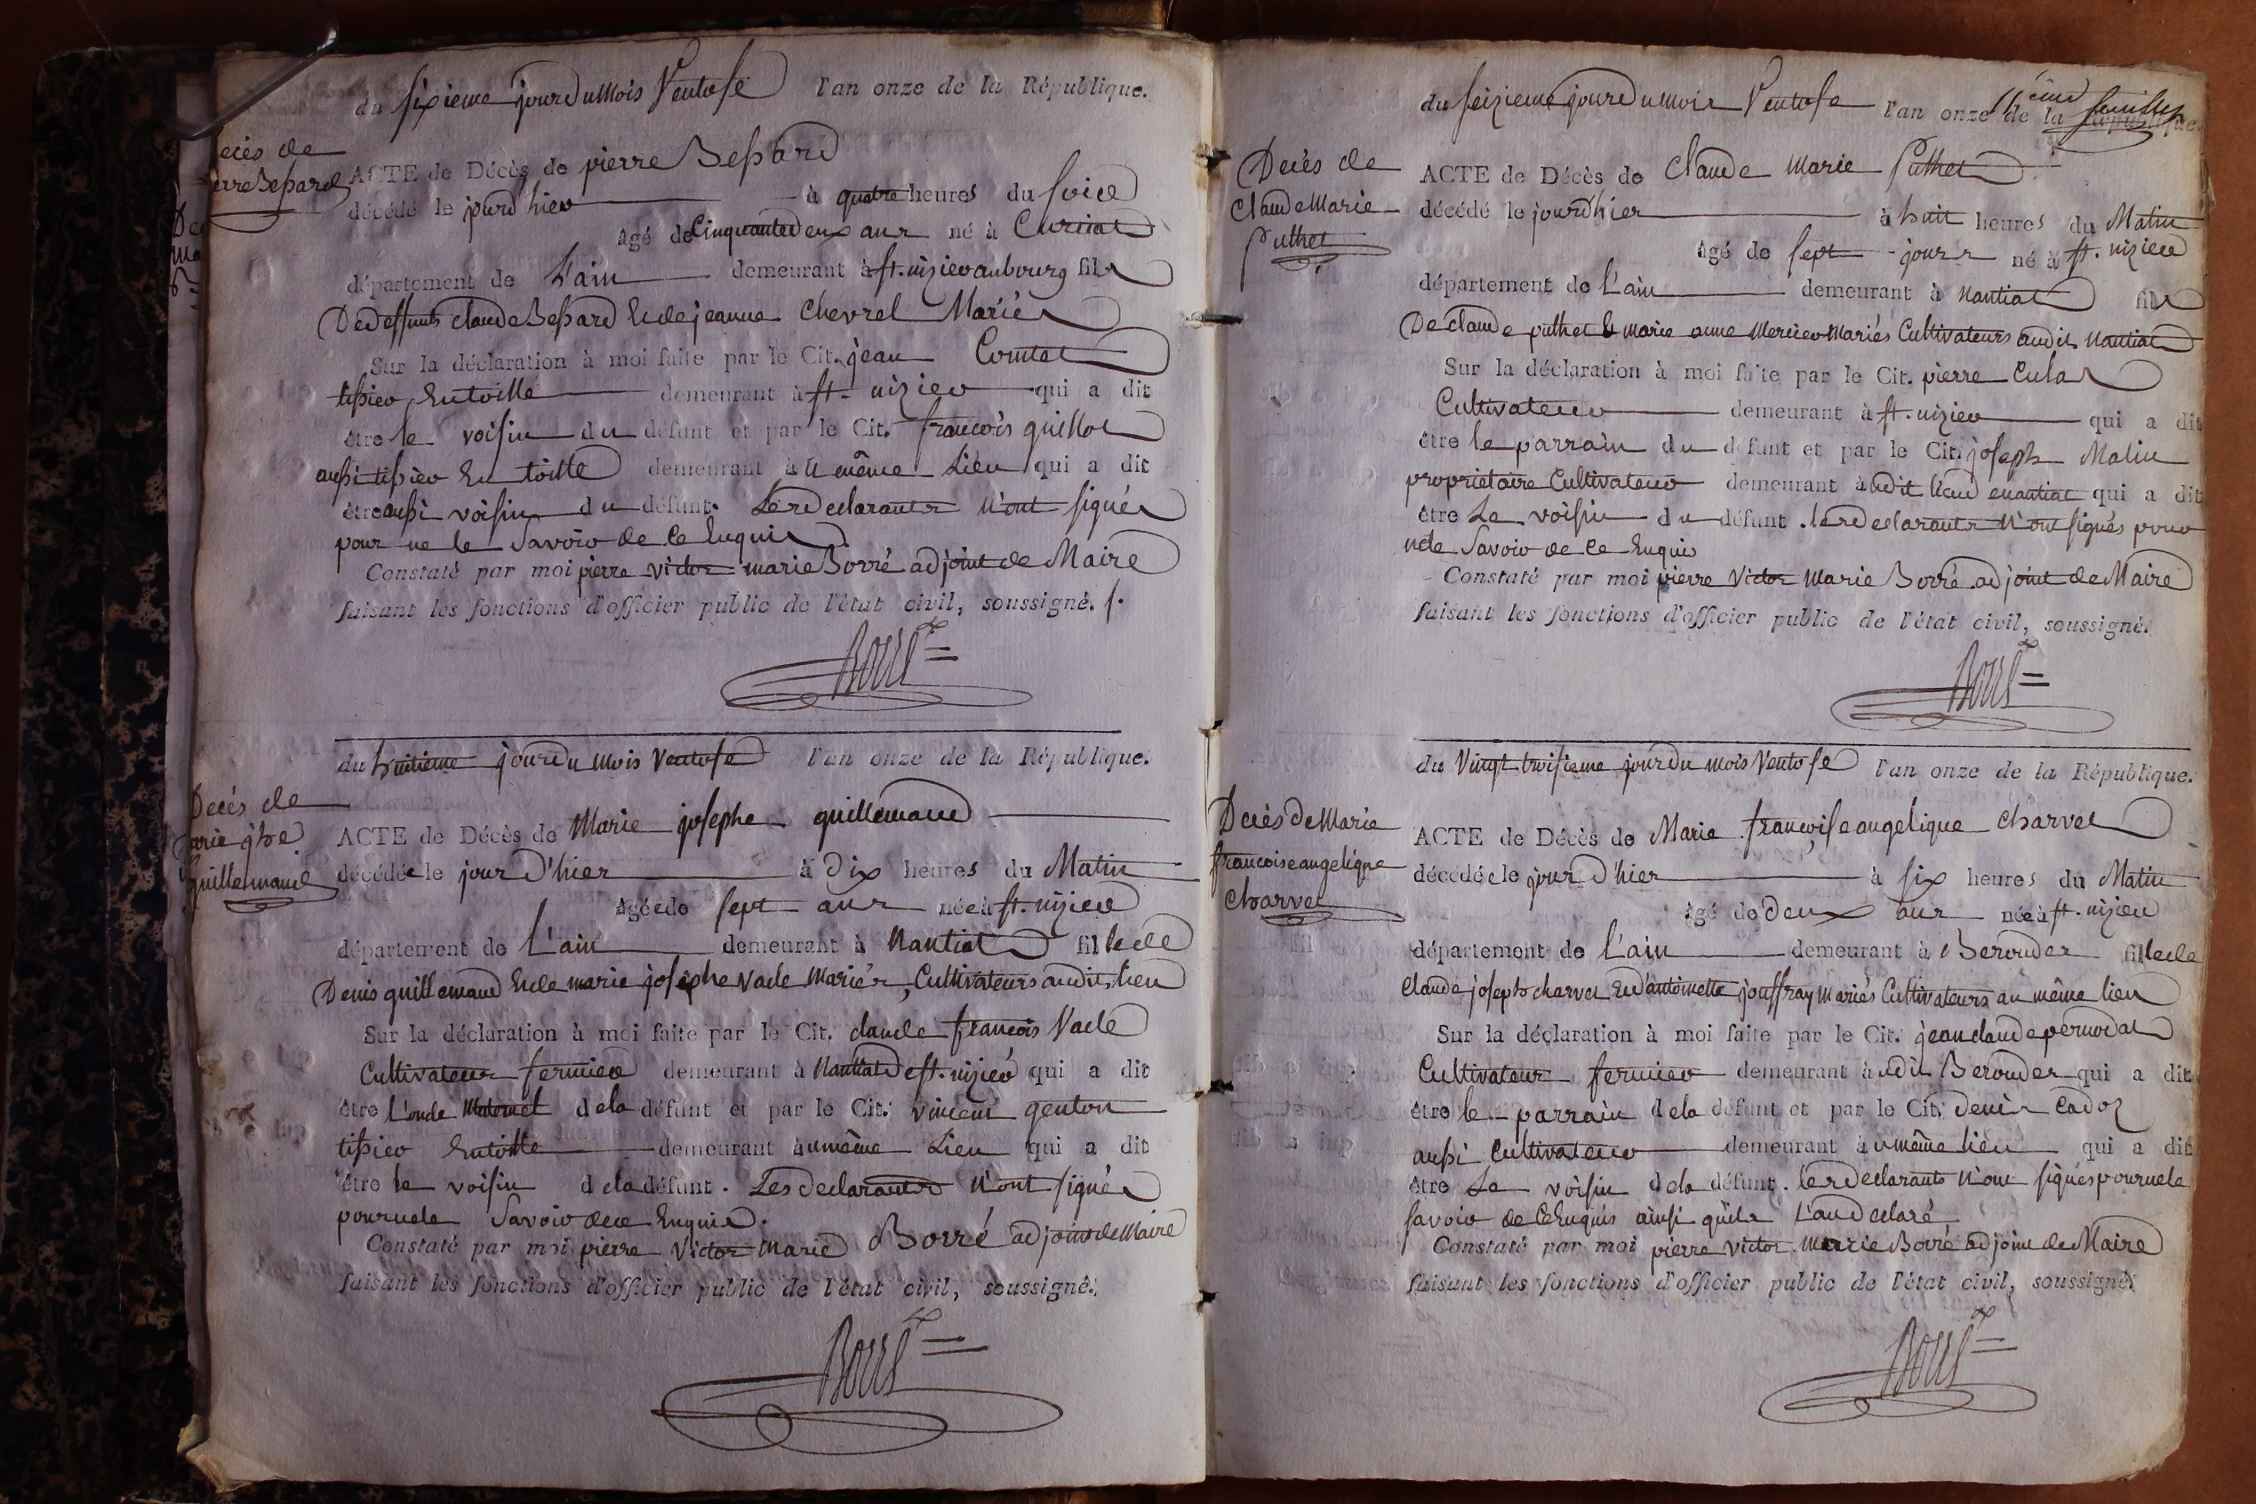 du sixieme jour du mois Ventose l'an onze de la République.
Decès de
pierre Bessard
ACTE de Décès de pierre Bessard
décédé le jourd'hier à quatre heures du soir
âgé de Cinquante deux ans né à Curciat
département de L'ain demeurant à st. nizier au bourg fils
De deffunts claude Bessard Et de jeanne Chevrel Mariés
Sur la déclaration à moi faite par le Cit. jean Comtet
tissier En toille demeurant à st. nizier qui a dit
être le voisin du défunt et par le Cit. françois guillot
aussi tissier En toille demeurant à le même Lieu qui a dit
être aussi voisin du défunt. Les declarants n'ont signés
pour ne le savoir de ce Enquis
Constaté par moi pierre victor marie Borré adjoint de Maire
faisant les fonctions d'officier public de l'état civil, soussigné.
Borré
du huitieme jour du mois Ventose l'an onze de la République.
Decès de
marie jphe
guillemaud
ACTE de Décès de Marie josephe guillemaud
décédée le jour D'hier à Dix heures du Matin
âgée de sept ans née à st. nizier
département de L'ain demeurant à Nantiat fille de
Denis guillemaud Et de marie josephe Vacle Mariés, Cultivateurs audit lieu
Sur la déclaration à moi faite par le Cit. claude françois Vacle
Cultivateur fermier demeurant à Nantiat de st. nizier qui a dit
être L'oncle Maternel de la défunt et par le Cit. vincent genton
tissier En toille demeurant à u même Lieu qui a dit
être le voisin de la défunt. Les declarants n'ont signés
pour ne le savoir de ce Enquis.
Constaté par moi pierre Victor Marie Borré adjoint de Maire
faisant les fonctions d'officier public de l'état civil, soussigné.
Borré
11ème feuillet
du seizieme jour du mois Ventose l'an onze de la République.
Decès de
Claude Marie
Puthet
ACTE de Décès de Claude Marie Puthet
décédé le jourd'hier à huit heures du Matin
âgé de sept jours né à st. nizier
département de L'ain demeurant à Nantiat fils
De claude puthet & marie anne Mercier Mariés Cultivateurs audit Nantiat
Sur la déclaration à moi faite par le Cit. pierre Culas
Cultivateur demeurant à st. nizier qui a dit
être le parrain du défunt et par le Cit. joseph Matin
propriétaire Cultivateur demeurant à udit lieu de nantiat qui a dit
être Le voisin du défunt. les declarants N'ont signés pour
ne le savoir de ce Enquis
Constaté par moi pierre Victor Marie Borré adjoint de Maire
faisant les fonctions d'officier public de l'état civil, soussigné.
Borré
du Vingt troisieme jour du mois Ventose l'an onze de la République.
Decès de Marie
francoise angelique
Charvet
ACTE de Décès de Marie françoise angelique Charvet
décédée le jour D'hier à six heures du Matin
âgé de Deux ans née à st. nizier
département de L'ain demeurant à Berouder fille de
Claude joseph charvet Et d'antoinette jouffray mariés Cultivateurs au même lieu
Sur la déclaration à moi faite par le Cit. jean claude pernodat
Cultivateur fermier demeurant à udit Berouder qui a dit
être le parrain de la défunt et par le Cit. Denis Cadoz
aussi Cultivateur demeurant à u même lieu qui a dit
être Le voisin de la défunt. les declarants N'ont signés pour ne le
savoir de Ce Enquis ainsi qu'ils L'ont declaré
Constaté par moi pierre victor Marie Borré adjoint de Maire
faisant les fonctions d'officier public de l'état civil, soussigné.
Borré